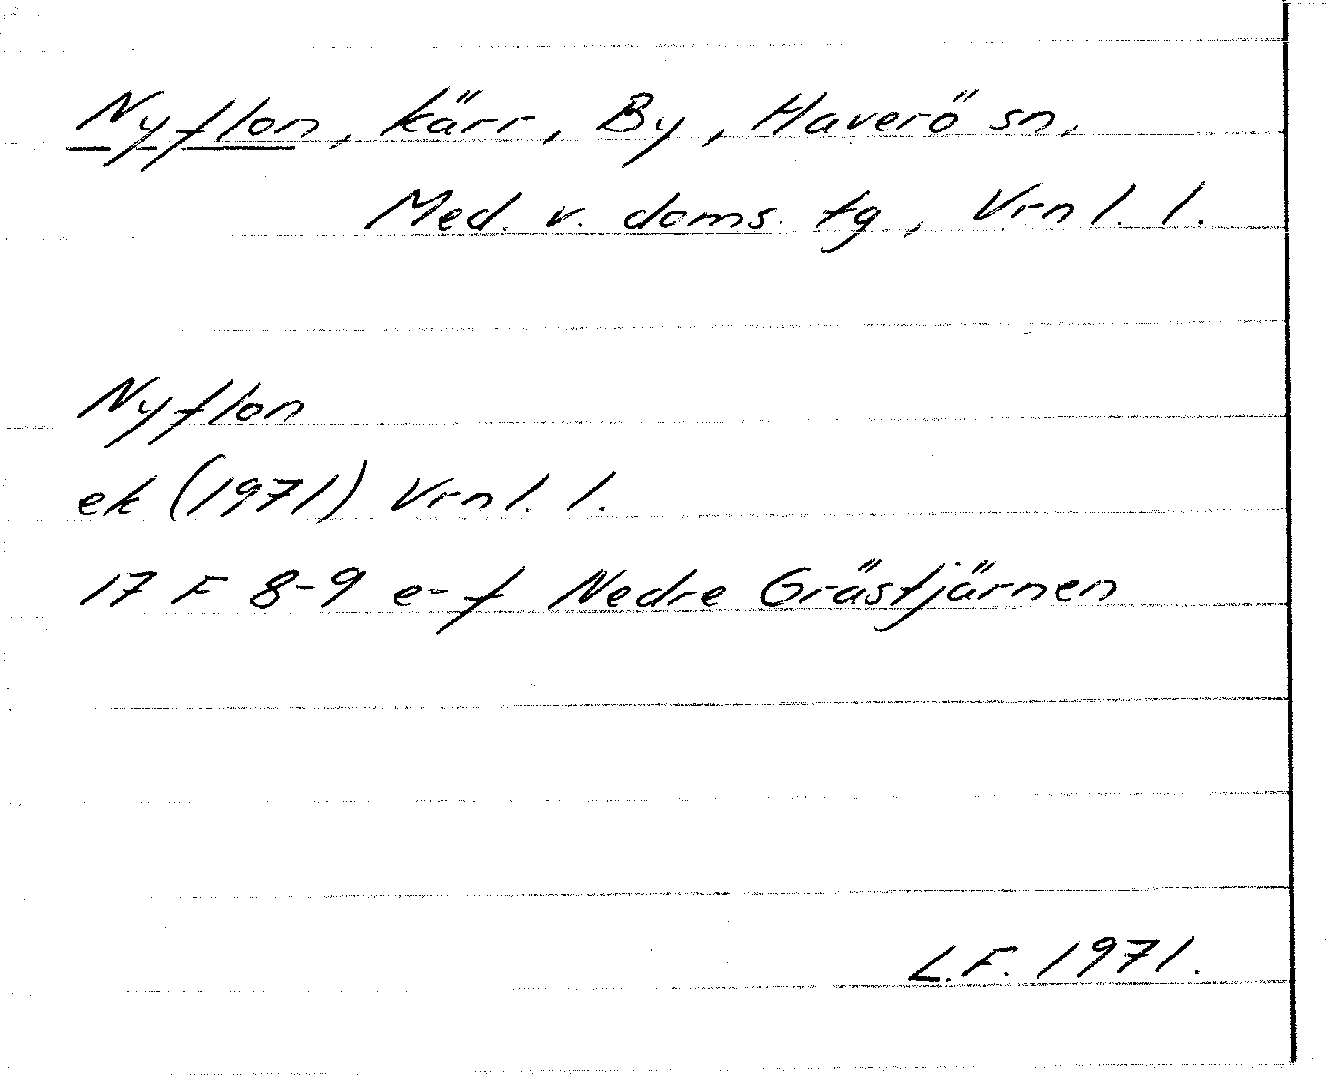 Nyflon, kärr, By, Haverö sn.
Med. v. doms. tg, Vrnl. l.
Nyflon
ek (1971) Vrnl. l.
17 F 8-9 e-f Nedre Grästjärnen
L.F. 1971.